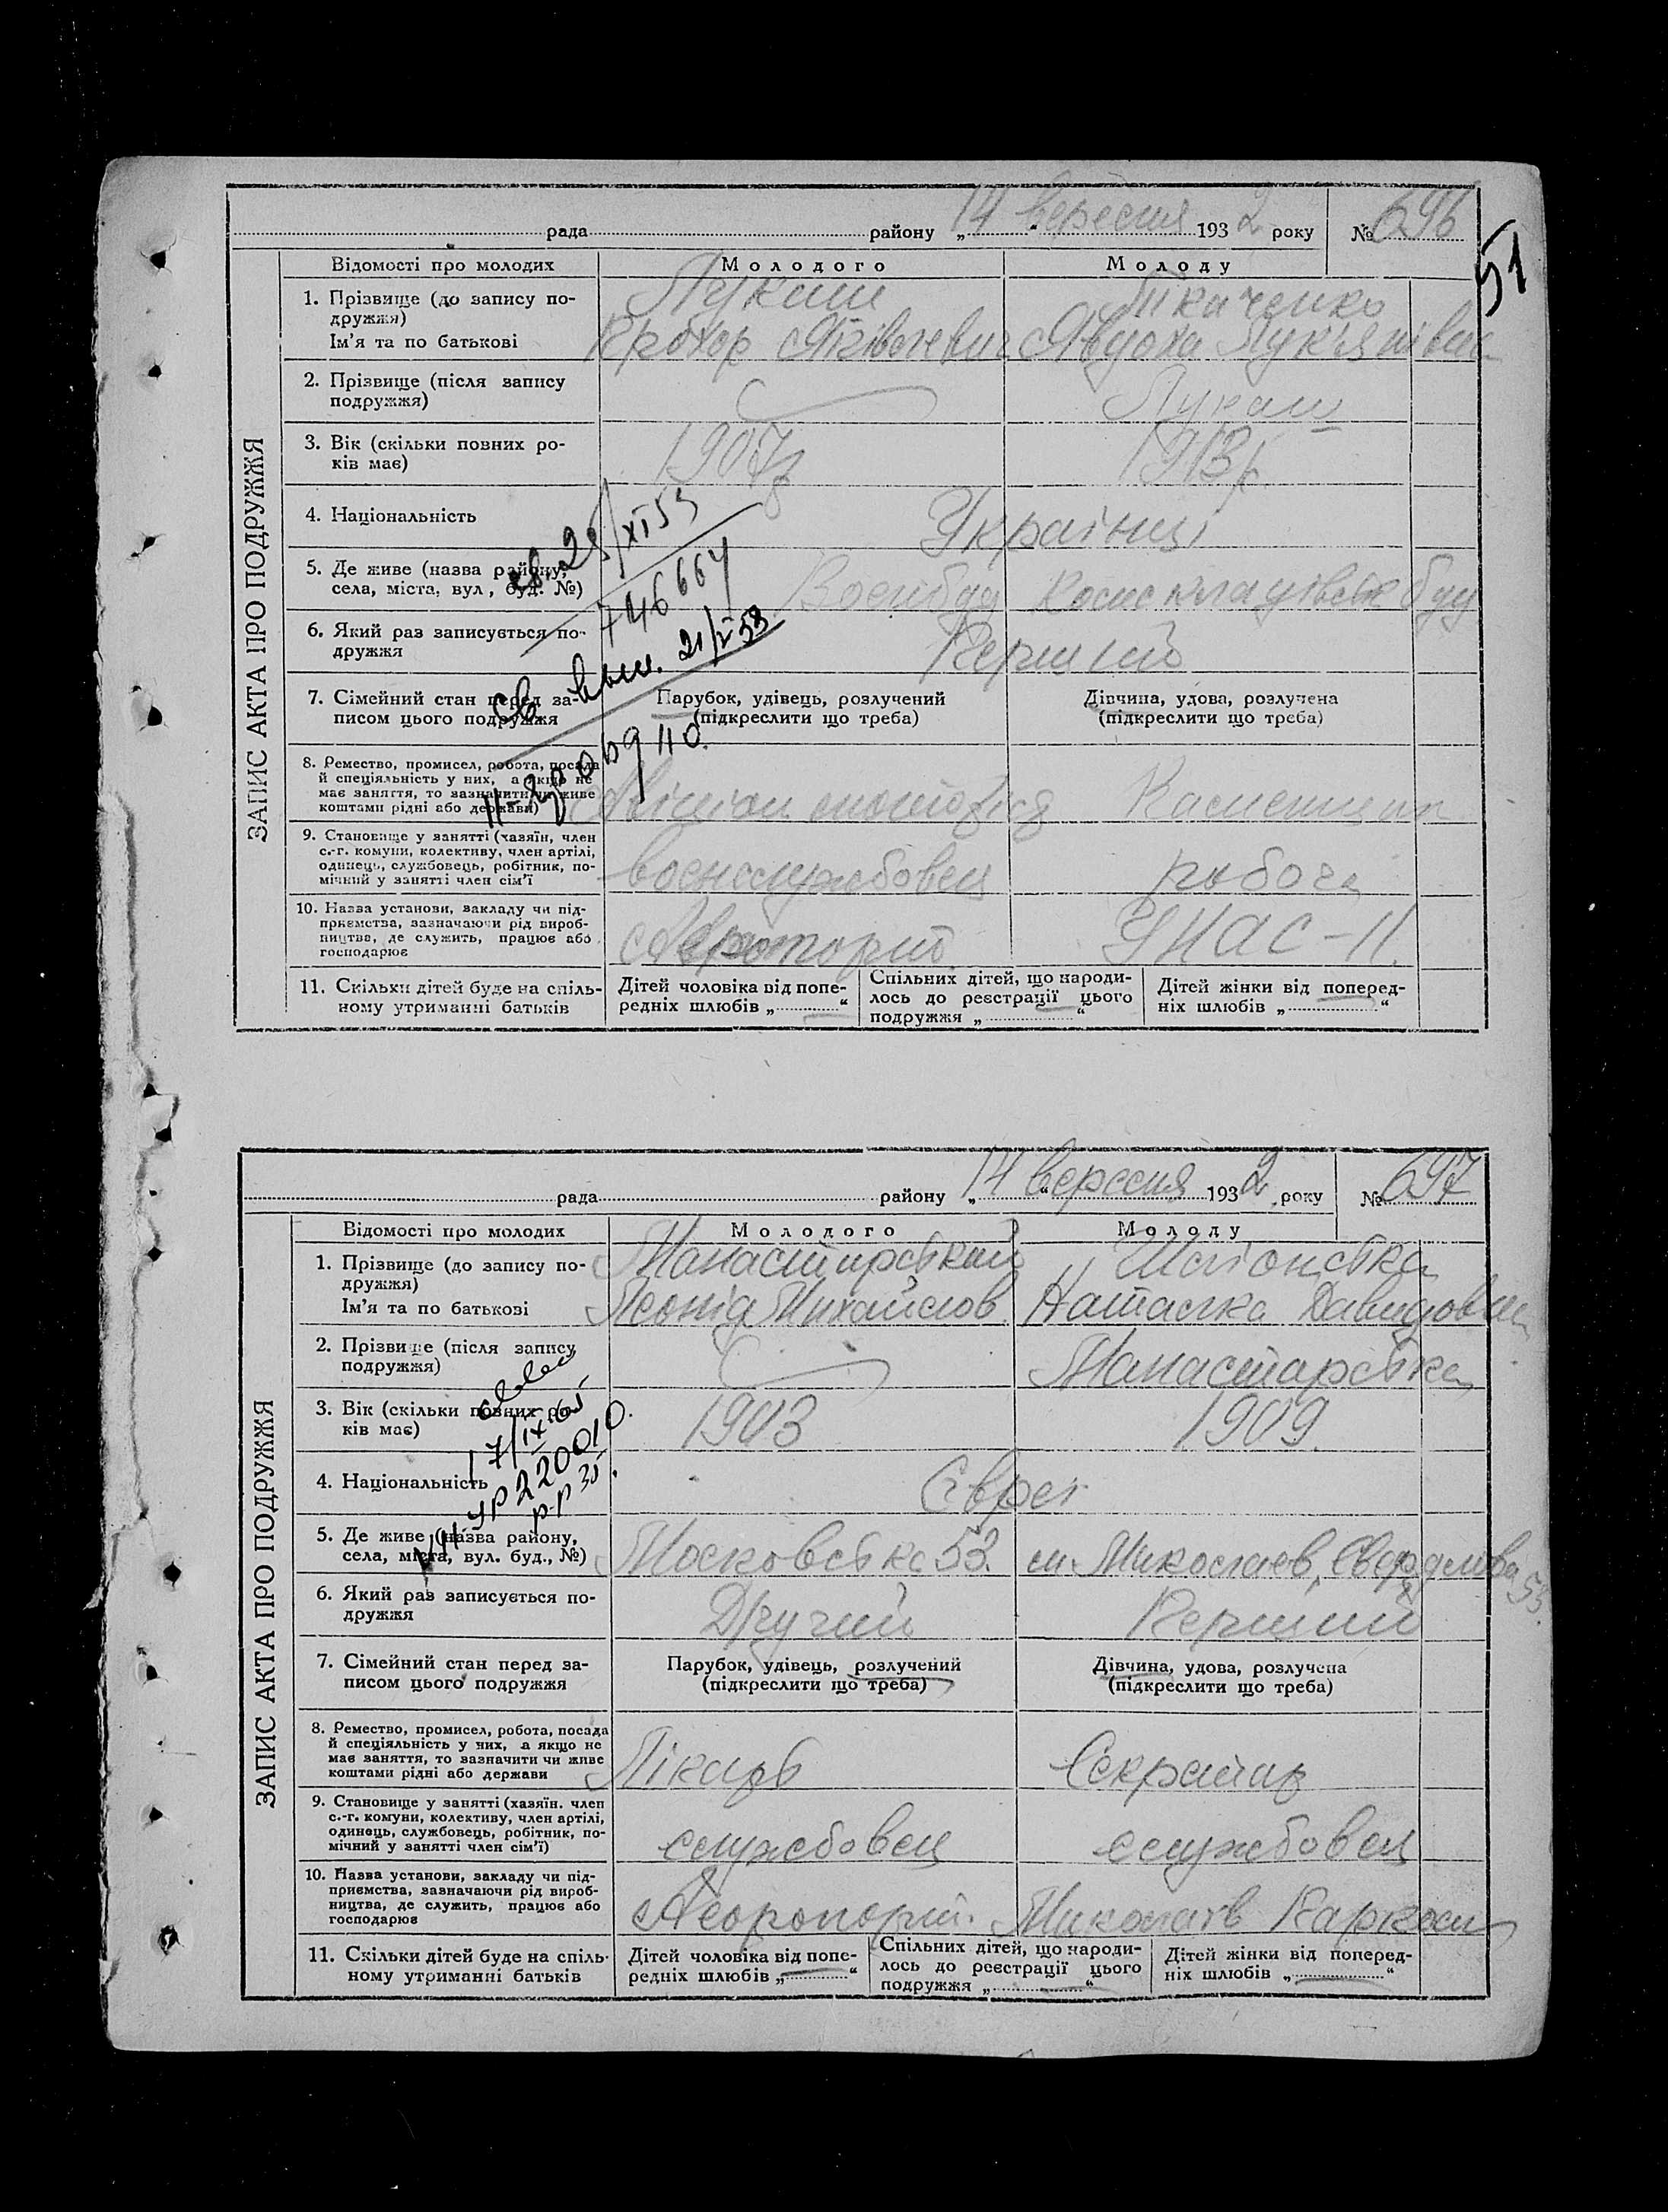 рада района „14“ вересня 1932 року № 696
51
ЗАПИС АКТА ПРО ПОДРУЖЖЯ
Відомості про молодих Молодого Молоду
1. Прізвище (до запису по-
дружжя)
Ім’я та по батькові
Лукаш Ткаченко
Прохор Явдоха Лук'янівна
2. Прізвище (після запису
подружжя)
Лукаш
3. Вік (скільки повних ро-
ків має)
1907р 1913р.
4. Національність
Українці
5. Де живе (назва району,
села, міста, вул, буд. №)
Военбуд
6. Який раз записується по-
дружжя
Перший
7. Сімейний стан перед за-
писом цього подружжя
Парубок, удівець, розлучений
(підкреслити що треба)
Дівчина, удова, розлучена
(підкреслити що треба)
8. Ремество, промисел, робота, посада
й спеціяльність у них, а якщо не
має заняття, то зазначити чи живе
коштами рідні або держави)
9. Становище у занятті (хазяїн, член
с.-г. комуни, колективу, член артілі,
одинець, службовець, робітник, по-
мічний у занятті член сім’ї
военслужбовец робоча
10. Назва установи, закладу чи під-
приємства, зазначаючи рід вироб-
ництва, де служить, працює або
господарює
11. Скільки дітей буде на спіль-
ному утриманні батьків
Дітей чоловіка від попе-
редніх шлюбів „ “
Спільних дітей, що народи-
лось до реєстрації цього
подружжя „ “
Дітей жінки від поперед-
ніх шлюбів „ “
746664
рада району „14“ вересня 1932 року № 697
ЗАПИС АКТА ПРО ПОДРУЖЖЯ
Відомості про молодих Молодого Молоду
1. Прізвище (до запису по-
дружжя)
Ім’я та по батькові
Манастирський
Леонід Михайлов. Наталка Давидовна
2. Прізвище (після запису
подружжя)
Манастирська
3. Вік (скільки повних ро-
ків має)
1903 1909.
4. Національність
Євреї
5. Де живе (назва району,
села, міста, вул. буд., №)
Московська 53. м. Миколаев, Свердлова 53.
6. Який раз записується по-
дружжя
Другий Перший
7. Сімейний стан перед за-
писом цього подружжя
Парубок, удівець, розлучений
(підкреслити що треба)
Дівчина, удова, розлучена
(підкреслити що треба)
8. Ремество, промисел, робота, посада
й спеціяльність у них, а якщо не
має заняття, то зазначити чи живе
коштами рідні або держави
Лікарь Секретар
9. Становище у занятті (хазяїн. член
с.-г. комуни, колективу, член артілі,
одинець, службовець, робітник, по-
мічний у занятті член сім’ї)
службовец службовец
10. Назва установи, закладу чи під-
приємства, зазначаючи рід вироб-
ництва, де служить, працює або
господарює
Миколаїв
11. Скільки дітей буде на спіль-
ному утриманні батьків
Дітей чоловіка від попе-
редніх шлюбів „ “
Спільних дітей, що народи-
лось до реєстрації цього
подружжя „ “
Дітей жінки від поперед-
ніх шлюбів „ “